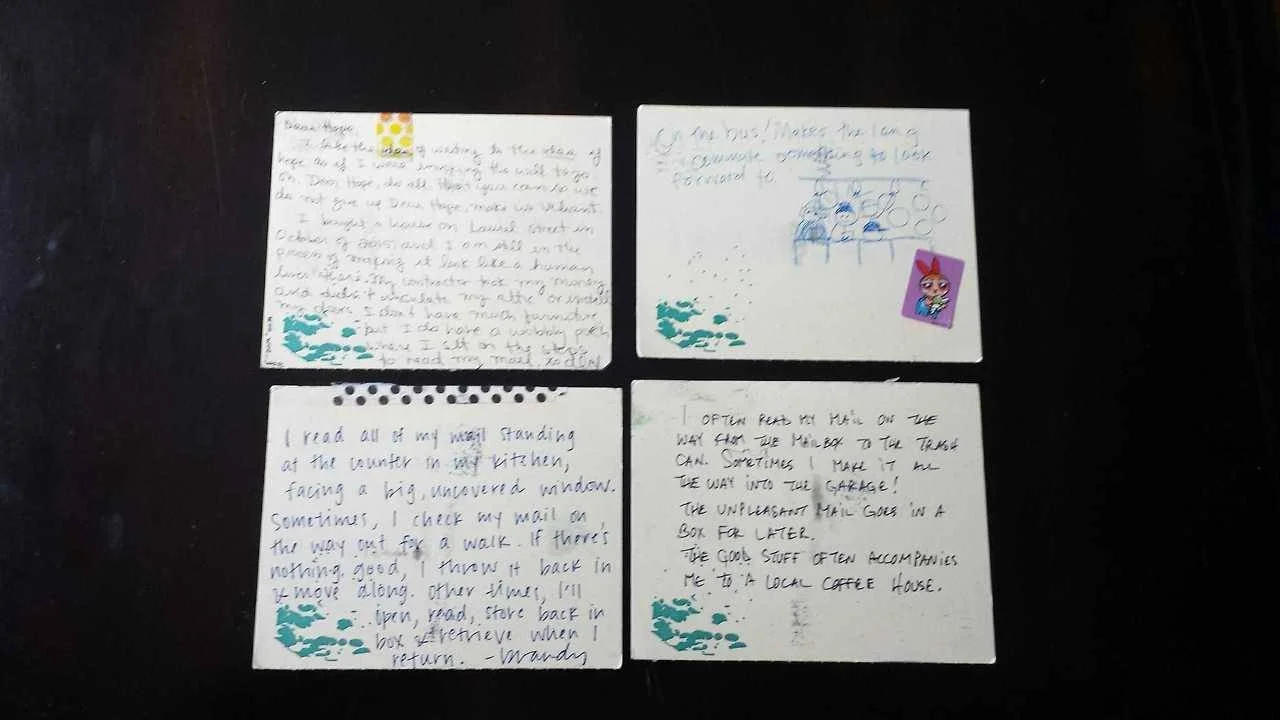 Dear Hope,
I like the idea of writing to the idea of
hope as if I were
on. Dear Hope, do all that you can so we
do not give up Dear Hope, make us vibrant.
I bought a house on Laurel street in
October of and I am still in the
process of making it look like a human
lives there. My contractor took my money
and didn't insulate my attic or install
my doors I don't have much furniture
but I do have a wobbly porch
where I sit on the steps
to read my mail.
On the bus! Makes the long
commute something to look
forward to.
I read all of my mail standing
at the counter in my kitchen,
facing a big, uncovered window.
Sometimes, I check my mail on
the way out for a walk. If there's
nothing good, I throw it back in
& move along. Other times, I'll
open, read, store back in
box & retrieve when I
return. -Mandy
I OFTEN READ MY MAIL ON THE
WAY FROM THE MAILBOX TO THE TRASH
CAN. SOMETIMES I MAKE IT ALL
THE WAY INTO THE GARAGE!
THE UNPLEASANT MAIL GOES IN A
BOX FOR LATER.
THE GOOD STUFF OFTEN ACCOMPANIES
ME TO A LOCAL COFFEE HOUSE.